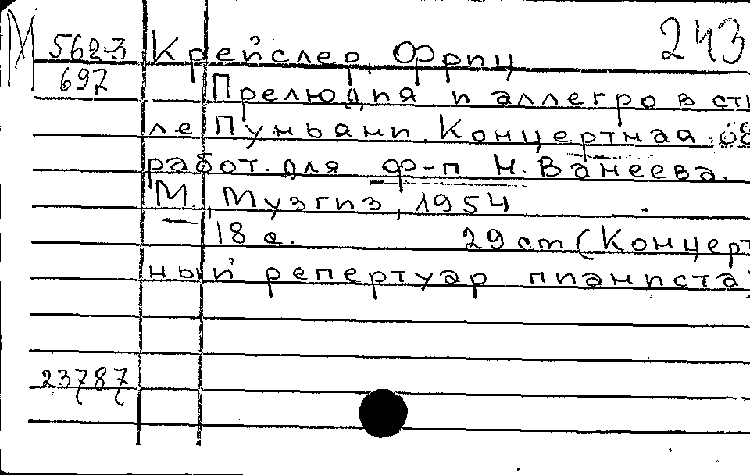 М 562-3 Крейслер, Фриц 243
697 Прелюдия и аллегро в сти
ле Пуньани. Концертная об
работ. для ф-п Н. Ванеева.
М., Музгиз, 1954
18 с. 29 cm (Концерт
ный репертуар пианиста)
23787